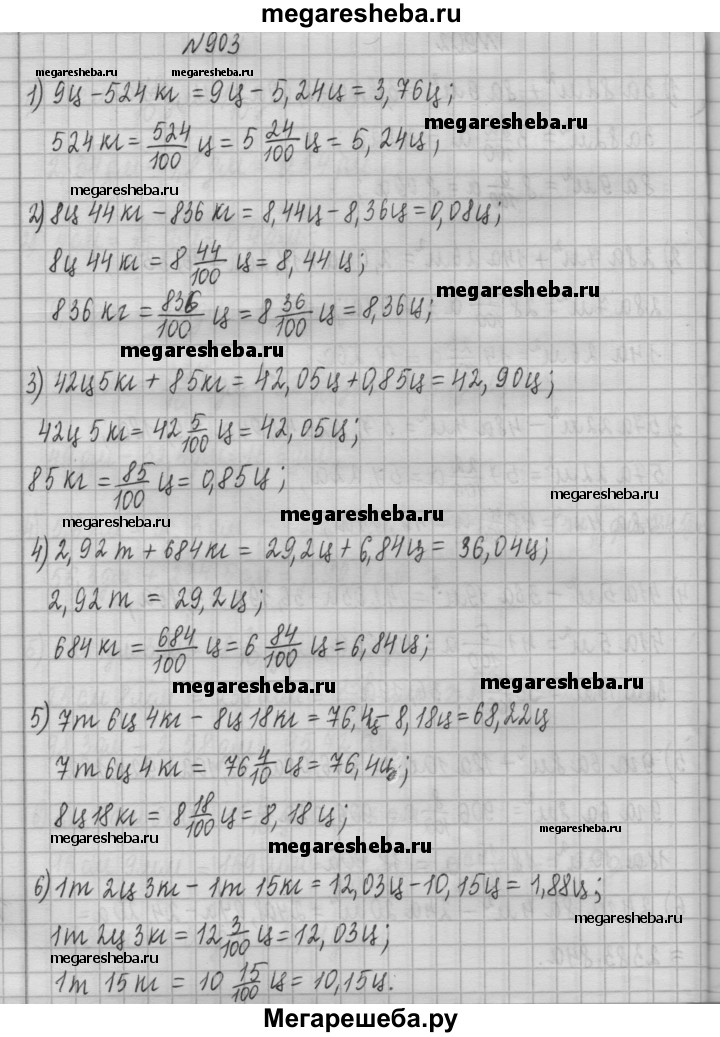 megaresheba.ru
№903
megaresheba.ru megaresheba.ru
1) 9ц - 524 кг = 9ц - 5,24ц = 3,76ц;
megaresheba.ru
524 кг = 524/100 ц = 5 24/100 ц = 5,24ц;
megaresheba.ru
2) 8ц 44 кг - 836 кг = 8,44ц - 8,36ц = 0,08ц;
8ц 44 кг = 8 44/100 ц = 8,44 ц;
megaresheba.ru
836 кг = 836/100 ц = 8 36/100 ц = 8,36ц;
megaresheba.ru
3) 42ц 5кг + 85кг = 42,05ц + 0,85ц = 42,90ц;
42ц 5 кг = 42 5/100 ц = 42,05ц;
85 кг = 85/100 ц = 0,85ц;
megaresheba.ru
megaresheba.ru megaresheba.ru
4) 2,92 т + 684 кг = 29,2ц + 6,84ц = 36,04ц;
2,92 т = 29,2ц;
684 кг = 684/100 ц = 6 84/100 ц = 6,84ц;
megaresheba.ru megaresheba.ru
5) 7т 6ц 4кг - 8ц 18кг = 76,4ц - 8,18ц = 68,22ц
7т 6ц 4кг = 76 4/10 ц = 76,4ц;
8ц 18кг = 8 18/100 ц = 8,18 ц;
megaresheba.ru megaresheba.ru
megaresheba.ru
6) 1т 2ц 3кг - 1т 15кг = 12,03ц - 10,15ц = 1,88ц;
megaresheba.ru
1т 2ц 3кг = 12 3/100 ц = 12,03ц;
megaresheba.ru
1т 15 кг = 10 15/100 ц = 10,15ц.
Мегарешеба.ру